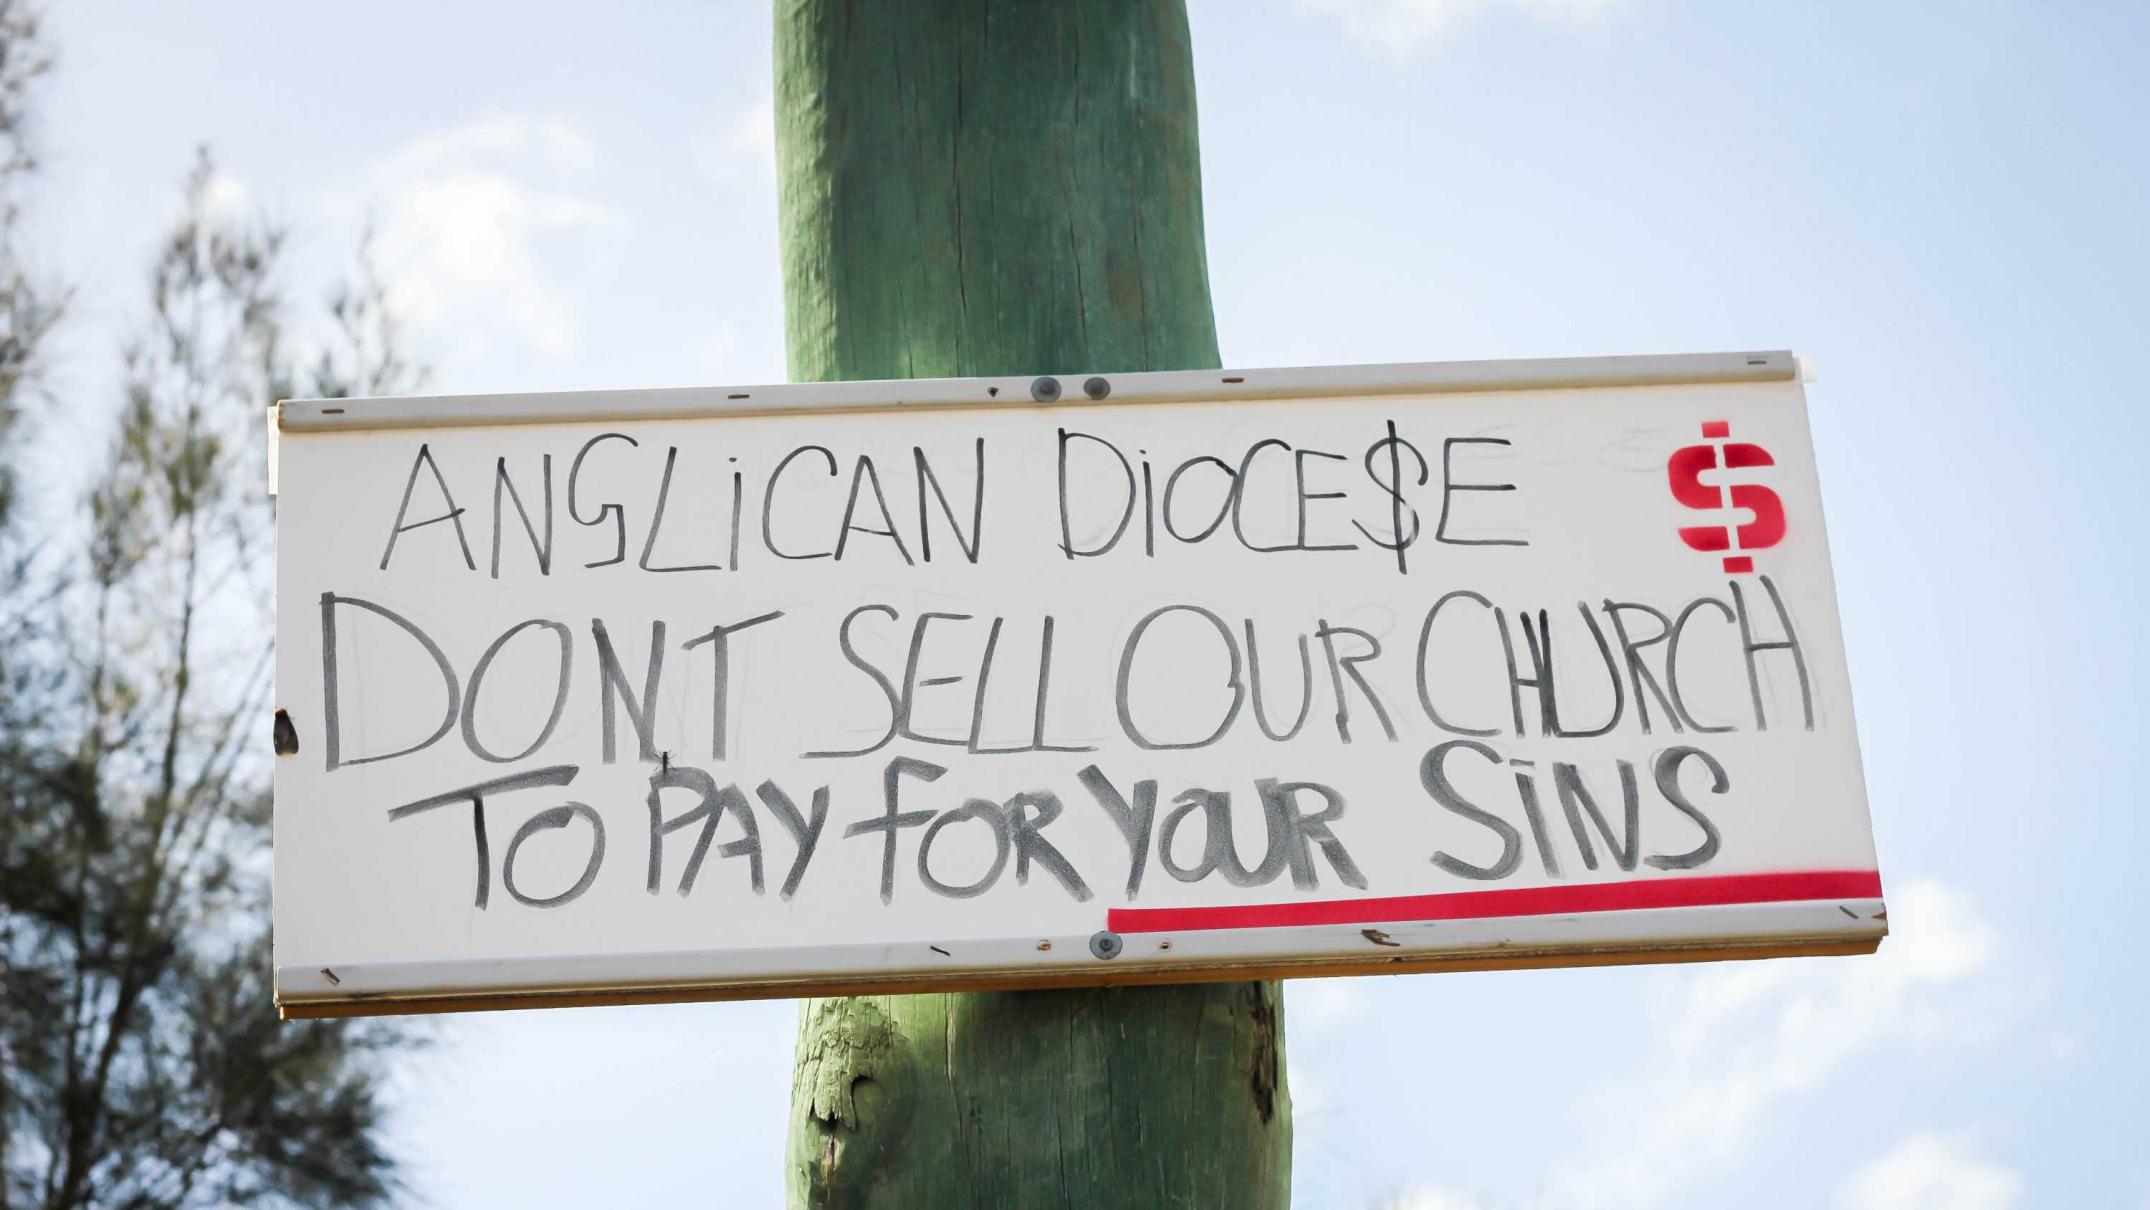 ANGLiCAN DiOCE$E $
DONT SELL OUR CHURCH
TO PAY FOR YOUR SiNS